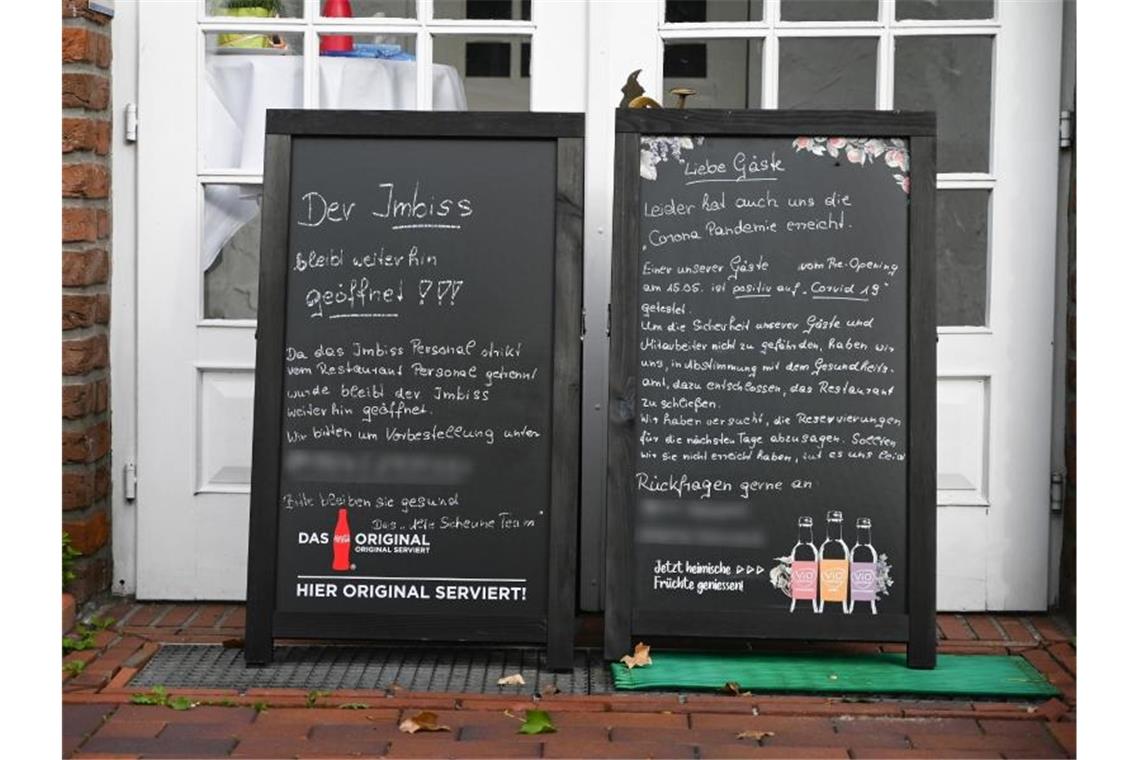 Der Imbiss
bleibt weiterhin
geöffnet !!!
Da das Imbiss Personal strikt
vom Restaurant Personal getrennt
wurde bleibt der Imbiss
weiterhin geöffnet.
Wir bitten um Vorbestellung unter
Bitte bleiben sie gesund
Das „Alte Scheune Team"
DAS ORIGINAL
ORIGINAL SERVIERT
HIER ORIGINAL SERVIERT!
Liebe Gäste
Leider hat auch uns die
„Corona Pandemie erreicht.
Einer unserer Gäste vom Pre-Opening
am 15.05. ist positiv auf „Corvid 19"
getestet.
Um die Sicherheit unserer Gäste und
Mitarbeiter nicht zu gefährden, haben wir
uns, in Abstimmung mit dem Gesundheits-
amt, dazu entschlossen, das Restaurant
zu schließen.
Wir haben versucht, die Reservierungen
für die nächsten Tage abzusagen. Sollten
wir sie nicht erreicht haben, tut es uns leid
Rückfragen gerne an
Jetzt heimische
Früchte geniessen!
ViO ViO ViO